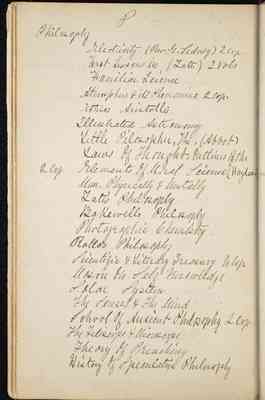 8
Philosophy
Electricity (Rev. G. Lidwig) 2 Cop.
First Lessons in (Tate) 2 Vols
Familiar Science
Atmosphere & its Phenomena 2 Cop.
Aristotle
Illustrated Astronomy
Little Philosopher, The (Abbot)
Laws Of Thought Outlines Of the
2 Cop. Elements Of Moral Science (Wayland
Man, Physically & Mentally
Tate's Philosophy
Bakewells Philosophy
Photographic Chemistry
Rollo's Philosophy
Scientific & Literary Treasury 2 Cop.
Mason On Self Knowledge
Solar System
The Senses & The Mind
School Of Ancient Philosophy 2 Cop.
The Telescope & Microscope
Theory Of Preaching
History Of Speculative Philosophy